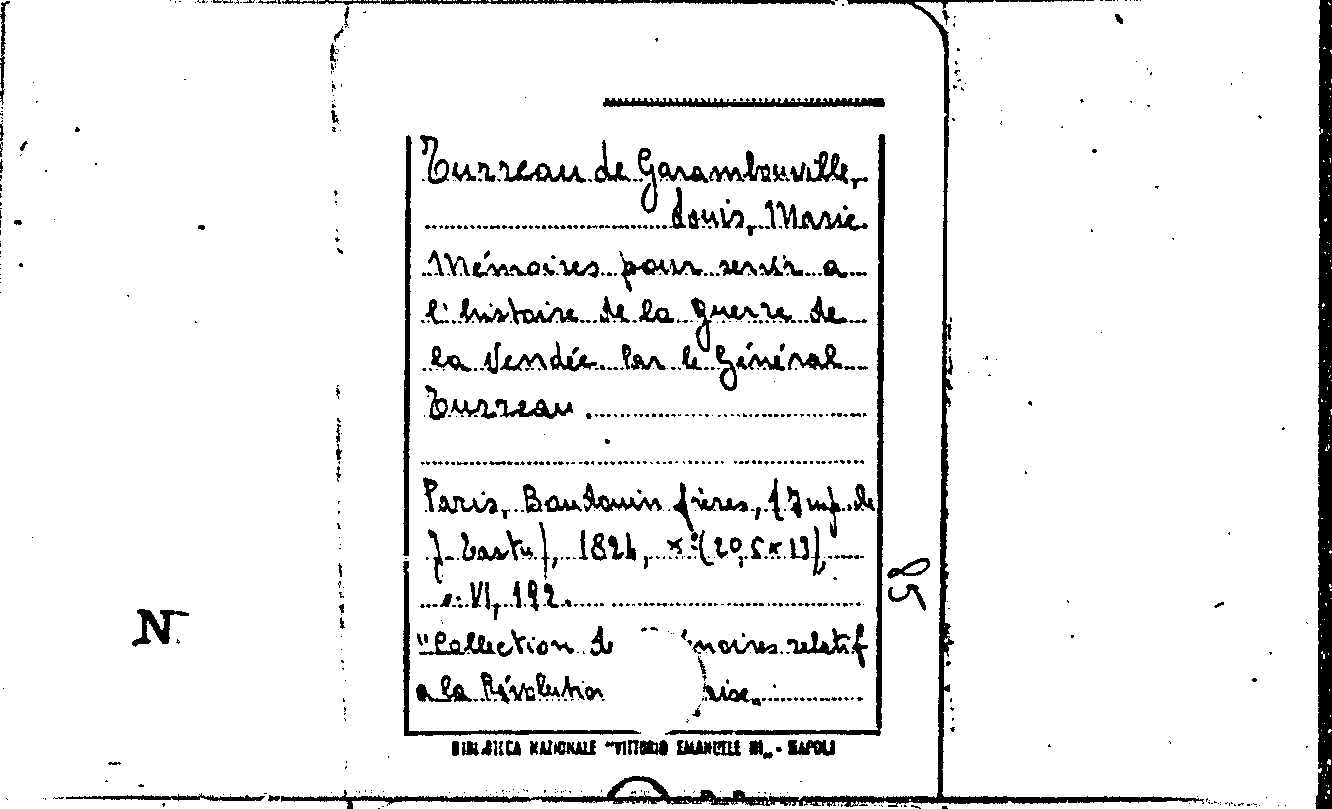 Turreau de Garambouville,
Louis, Marie.
Mémoires pour servir a
l'histoire de la guerre de
la Vendée. Par le Général
Turreau.
Paris, Baudouin frères, (Imp. de
J. Tastu), 1824, 8º (20,5 x 13),
VI, 192.
"Collection de moires relatif
a la Révolution rise"
85
N
BIBLIOTECA NAZIONALE "VITTORIO EMANUELE III" - NAPOLI